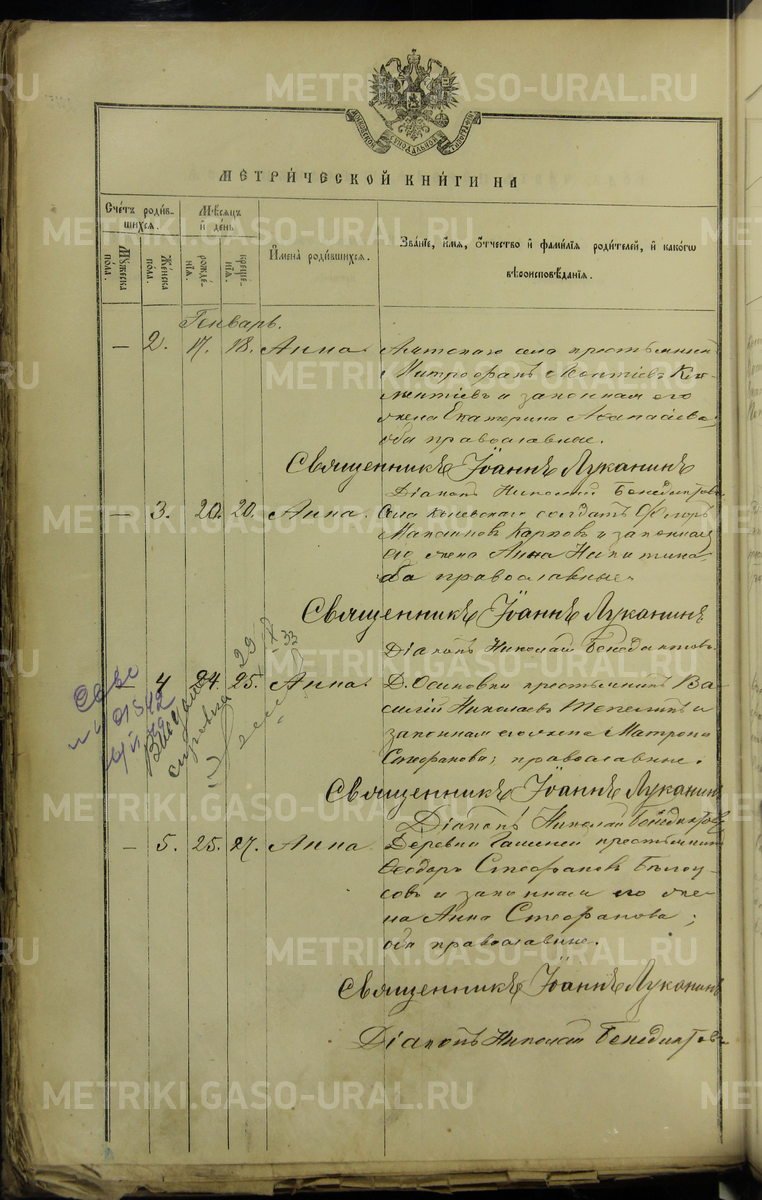 METRIKI.GASO-URAL.RU
МЕТРИ́ЧЕСКОЙ КНИ́ГИ НА
Сче́тъ роди́в-
шихся.
Му́жеска
по́ла.
Же́нска
по́ла.
Мѣ́сяцъ
и҆ де́нь
рожде́-
нїя.
креще́-
нїя.
И҆мена̀ роди́вшихся.
Зва́нїе, и҆́мя, ѻ҆́тчество и҆ фами́лїя роди́телей, и҆ како́гѡ
вѣроисповѣ́данїя.
Генварь.
— 2. 17. 18. Анна. села крестьянинъ
Митрофанъ Леонтіевъ
и законная его
жена Екатерина
оба православные.
Священникъ Іоаннъ Луканинъ
Діаконъ Николай Бенедиктовъ
— 3. 20. 20. Анна. Села солдатъ
Карповъ и законная
его жена Анна Никитина
оба православные
Священникъ Іоаннъ Луканинъ
Діаконъ Николай Бенедиктовъ.
— 4 24. 25. Анна. Д. Осиновки крестьянинъ Ва-
силій Николаевъ и
законная его жена Матрона
Стефанова; православные.
Священникъ Іоаннъ Луканинъ
Діаконъ Николай Бенедиктовъ
— 5. 25. 27. Анна Деревни крестьянинъ
Ѳеодоръ Стефановъ Бѣлоу-
совъ и законная его же-
на Анна Стефанова;
оба православные.
Священникъ Іоаннъ Луканинъ
Діаконъ Николай Бенедиктовъ